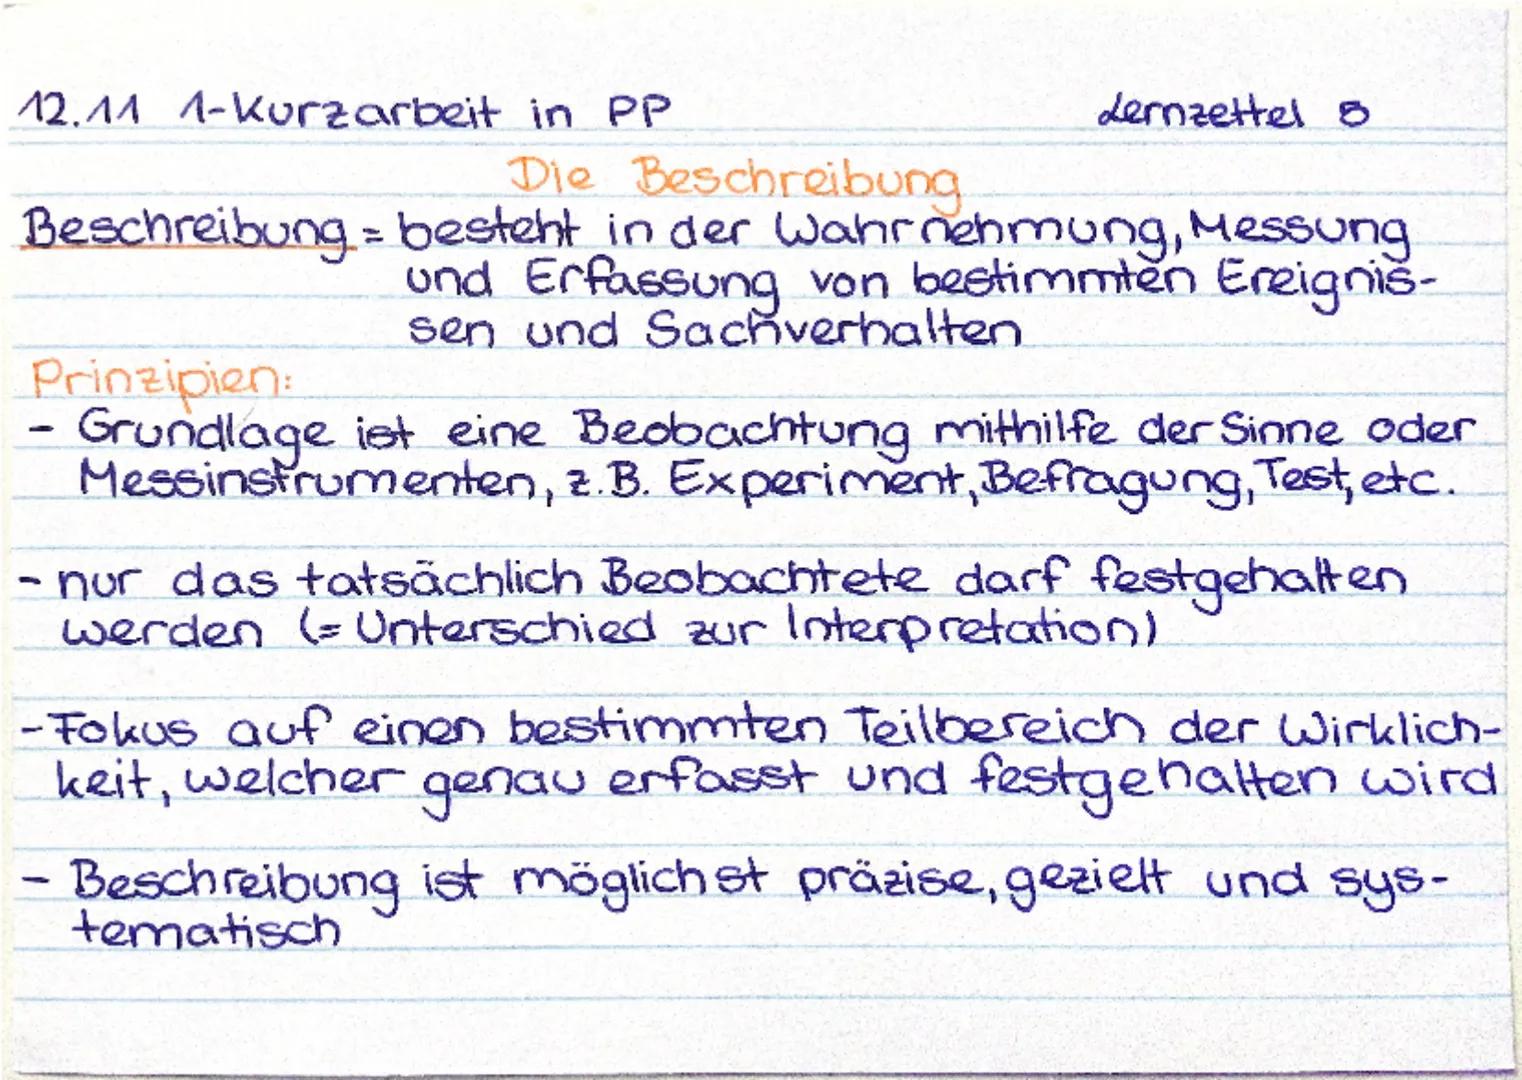 12.11 1-Kurzarbeit in PP Lernzettel 8
Die Beschreibung
Beschreibung = besteht in der Wahrnehmung, Messung
und Erfassung von bestimmten Ereignis-
sen und Sachverhalten
Prinzipien:
- Grundlage ist eine Beobachtung mithilfe der Sinne oder
Messinstrumenten, z.B. Experiment, Befragung, Test, etc.
- nur das tatsächlich Beobachtete darf festgehalten
werden (= Unterschied zur Interpretation)
- Fokus auf einen bestimmten Teilbereich der Wirklich-
keit, welcher genau erfasst und festgehalten wird
- Beschreibung ist möglichst präzise, gezielt und sys-
tematisch